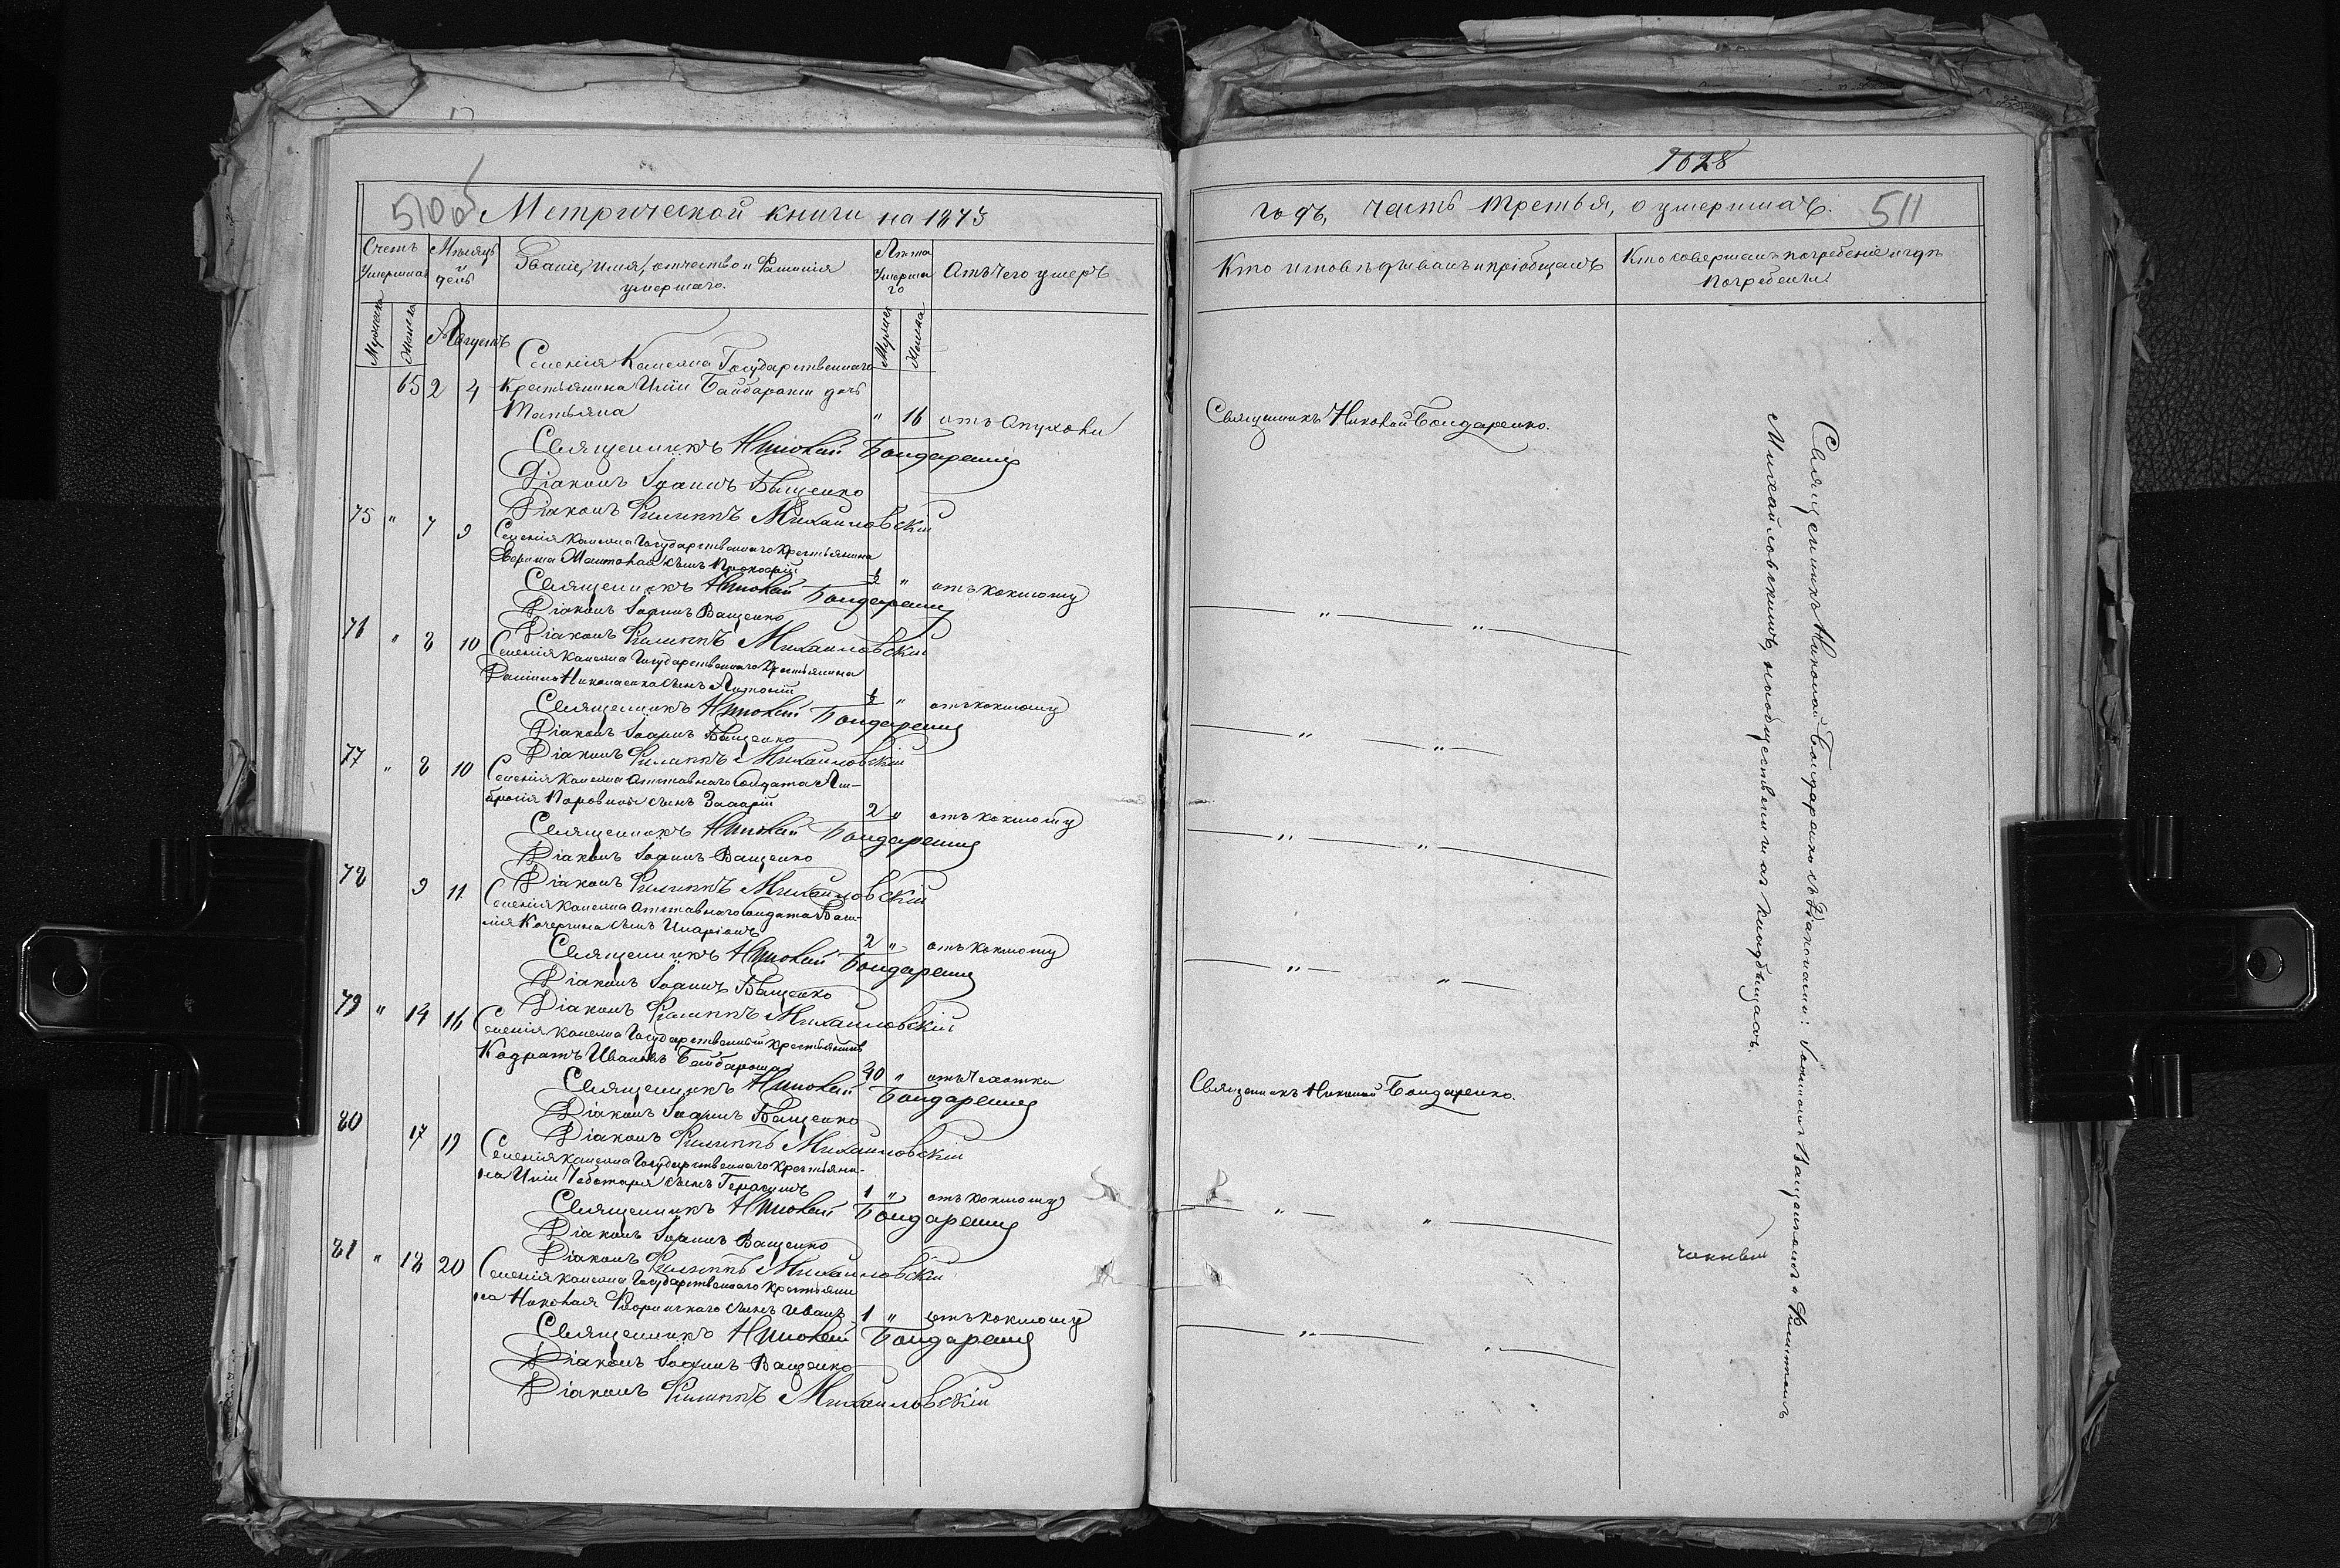 510 об
Метрической книги на 1873
Счетъ умершихъ
Мѣсяцъ и день
Званіе, имя, отчество и Фамилія умершаго.
Лѣта Умершаго
Отъ чего умеръ
Мужеска
Женска
Августъ
Селенія Камелна Государственнаго
65 2 4 Крестьянина Иліи Байбароши дочь
Татьяна " 16 отъ опухоли
Священникъ Николай Бондаренко
Діаконъ Іоаннъ Ващенко
Діаконъ Филиппъ Михайловскій
75 " 7 9 Селенія Камелна Государственнаго Крестьянина
сынъ Прокофій 1/2 " отъ коклюшу
Священникъ Николай Бондаренко
Діаконъ Іоаннъ Ващенко
Діаконъ Филиппъ Михайловскій
76 " 8 10 Селенія Камелна Государственнаго Крестьянина
Даніила Николаенка сынъ Антоній 1/2 " отъ коклюшу
Священникъ Николай Бондаренко
Діаконъ Іоаннъ Ващенко
Діаконъ Филиппъ Михайловскій
77 " 8 10 Селенія Камелна Отставнаго Солдата Ам-
бросія сынъ Захарій 2 " отъ коклюшу
Священникъ Николай Бондаренко
Діаконъ Іоаннъ Ващенко
Діаконъ Филиппъ Михайловскій
78 9 11 Селенія Камелна Отставнаго Солдата Васи-
лія Кочергина сынъ Иларіонъ 2 " отъ коклюшу
Священникъ Николай Бондаренко
Діаконъ Іоаннъ Ващенко
Діаконъ Филиппъ Михайловскій
79 " 14 16 Селенія Камелна Государственный крестьянинъ
Кодратъ Ивановъ Байбароша 40 " отъ чехотки
Священникъ Николай Бондаренко
Діаконъ Іоаннъ Ващенко
Діаконъ Филиппъ Михайловскій
80 17 19 Селенія Камелна Государственнаго Крестьяни-
на Иліи Чеботаря сынъ Герасимъ 1 " отъ коклюшу
Священникъ Николай Бондаренко
Діаконъ Іоаннъ Ващенко
Діаконъ Филиппъ Михайловскій
81 " 18 20 Селенія Камелна Государственнаго Крестьяни
на Николая сынъ Иванъ 1 " отъ коклюшу
Священникъ Николай Бондаренко
Діаконъ Іоаннъ Ващенко
Діаконъ Филиппъ Михайловскій
1628
годъ, часть третья, о умершихъ. 511
Кто исповѣдывалъ и пріобщалъ
Кто совершалъ погребеніе и гдѣ погребены
Священникъ Николай Бондаренко.
" "
" "
" "
" "
Священникъ Николай Бондаренко.
" "
" "
Священникъ Николай Бондаренко съ Діаконами: Іоанномъ Ващенкомъ и Филиппомъ
Михайловскимъ, на общественныхъ кладбищахъ.